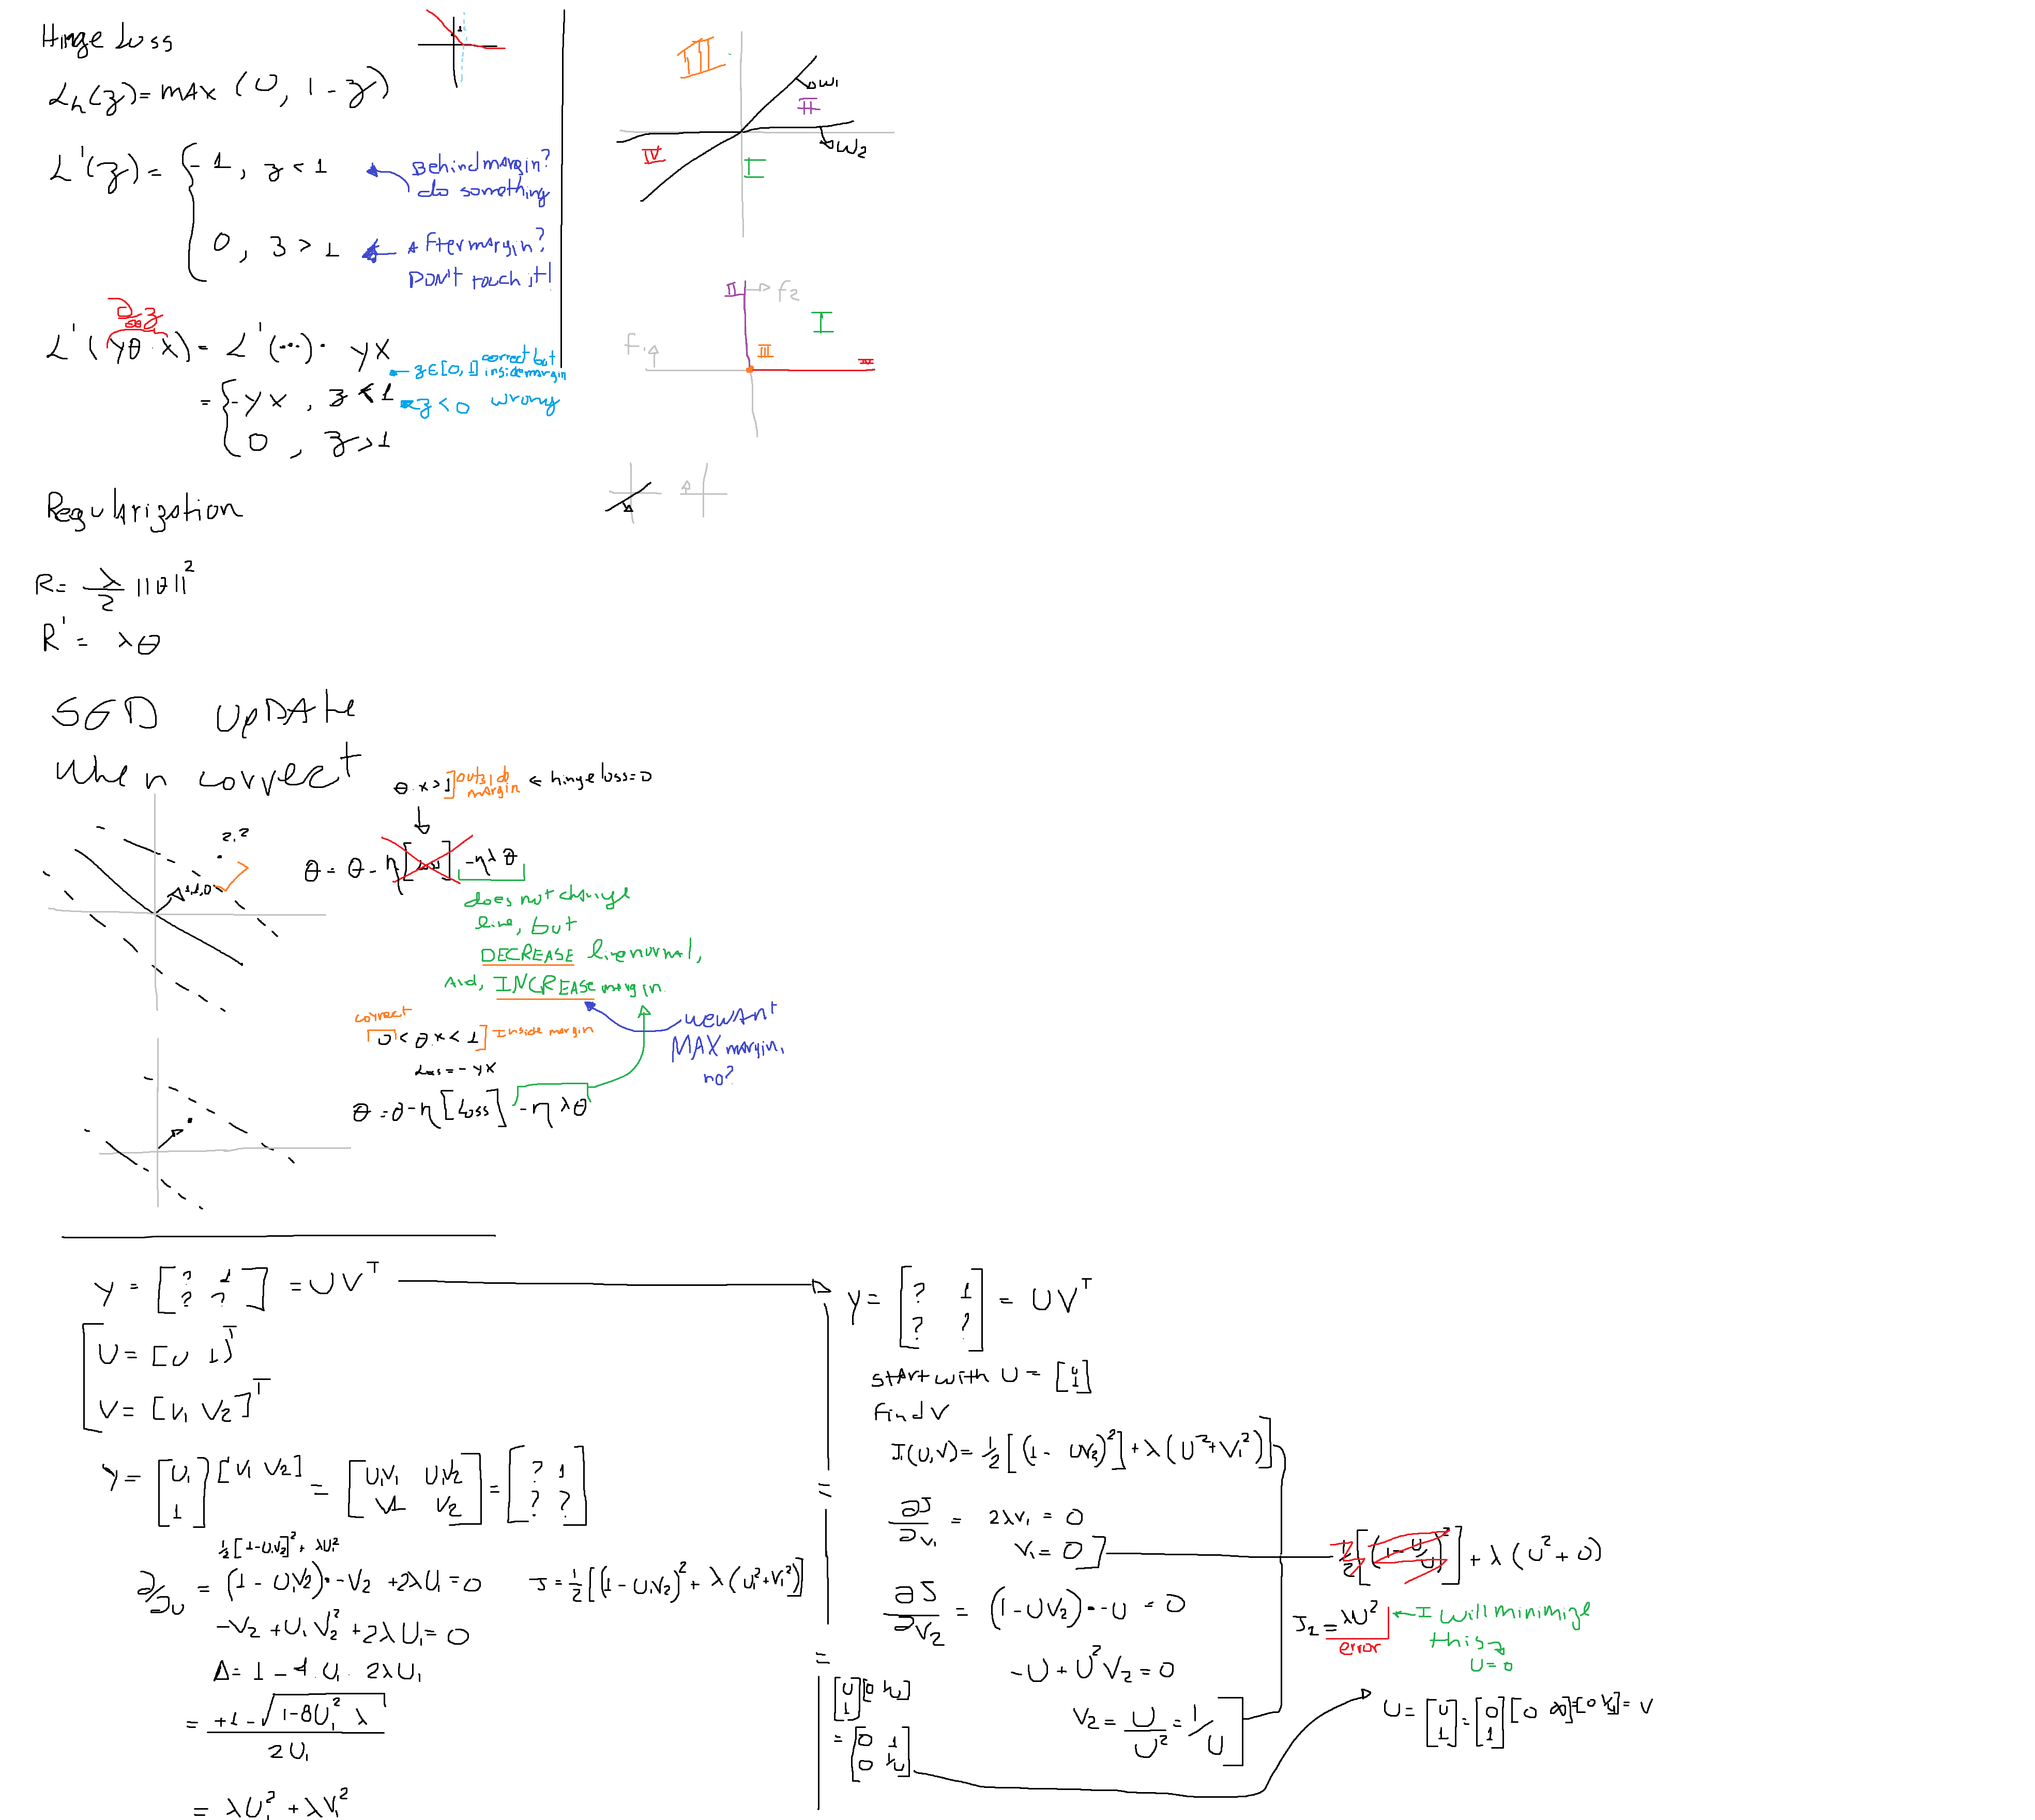 Hinge Loss
L_h(z) = max (0, 1 - z)
L'(z) = { -1, z < 1
Behind margin?
do something
0, z > 1
After margin?
DON'T touch it!
z
L'(yθ·x) = L'(...)· yx
= { -yx, z < 1
0, z > 1
z∈[0,1] correct but
inside margin
z < 0 wrong
III
w1
II
w2
IV
I
II
f2
I
F1
III
IV
Regularization
R = λ/2 ||θ||²
R' = λθ
SGD UpDAte
when correct
θ·x > 1] outside
margin
← hinge loss = 0
2,2
θ = θ - η[Loss] - ηλθ
does not change
line, but
DECREASE line normal,
And, INCREASE margin
we want
MAX margin,
no?
correct
0 < θ·x < 1] Inside margin
Loss = - yx
θ = θ - η[Loss] - ηλθ
Y = [? 1
? ?] = UV^T
U = [U 1]^T
V = [V1 V2]^T
Y = [U1
1] [V1 V2] = [U1V1 U1V2
V1 V2] = [? 1
? ?]
½[1-U1V2]² + λU1²
∂/∂U = (1 - U1V2)·-V2 + 2λU1 = 0
J = ½[(1 - U1V2)² + λ(U1² + V1²)]
-V2 + U1V2² + 2λU1 = 0
Δ = 1 - 4·U1·2λU1
= +1 - √(1-8U1²λ)
2U1
= λU1² + λV1²
Y = [? 1
? ?] = UV^T
start with U = [U
1]
Find V
J1(U,V) = ½[(1 - UV2)²] + λ(U² + V1²)]
∂J/∂V1 = 2λV1 = 0
V1 = 0]
½[(1 - U/U)²] + λ(U² + 0)
∂J/∂V2 = (1 - UV2)·-U = 0
J2 = λU²
error
← I will minimize
this
U = 0
-U + U²V2 = 0
V2 = U/U² = 1/U]
[U
1][0 1/U]
= [0 1
0 1/U]
U = [U
1] = [0
1] [0 ∞] = [0 1/U] = V